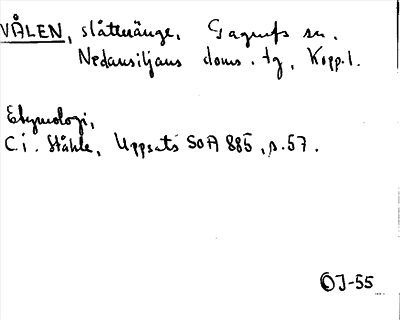 VÅLEN, slåtteränge, Gagnefs sn.
Nedansiljans doms. tg, Kopp. l.
Etymologi,
C. I. Ståhle, Uppsats SOA 885, s. 57.
OJ-55